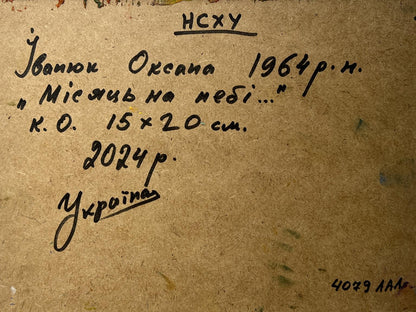 НСХУ
Іванюк Оксана 1964р.н.
„Місяць на небі..."
к.о. 15×20 см.
2024р.
Україна
4079